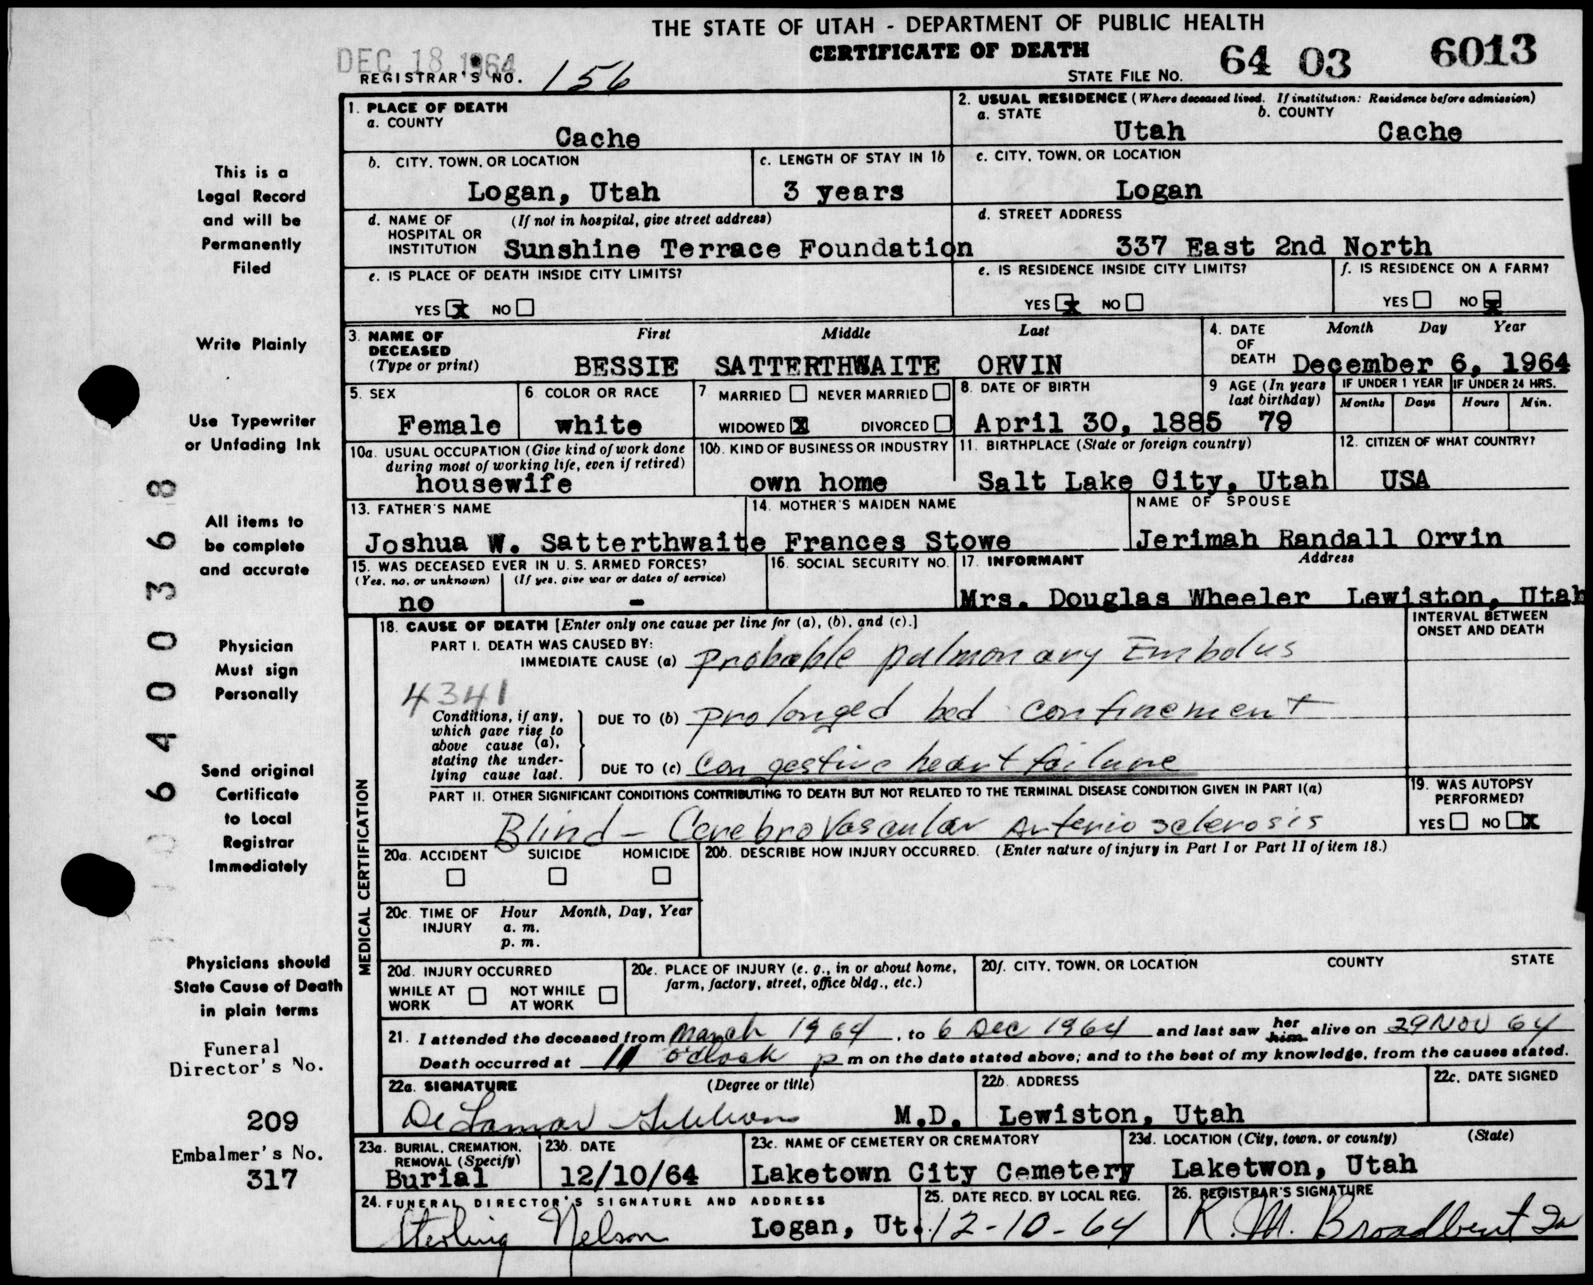 THE STATE OF UTAH - DEPARTMENT OF PUBLIC HEALTH
CERTIFICATE OF DEATH
DEC 18 1964
REGISTRAR'S NO. 156
STATE FILE NO. 64 03 6013
1. PLACE OF DEATH
a. COUNTY
Cache
2. USUAL RESIDENCE (Where deceased lived. If institution: Residence before admission)
a. STATE b. COUNTY
Utah Cache
b. CITY, TOWN, OR LOCATION
Logan, Utah
c. LENGTH OF STAY IN 1b
3 years
c. CITY, TOWN, OR LOCATION
Logan
d. NAME OF HOSPITAL OR INSTITUTION (If not in hospital, give street address)
Sunshine Terrace Foundation
d. STREET ADDRESS
337 East 2nd North
e. IS PLACE OF DEATH INSIDE CITY LIMITS?
YES x NO
e. IS RESIDENCE INSIDE CITY LIMITS?
YES x NO
f. IS RESIDENCE ON A FARM?
YES NO x
3. NAME OF DECEASED (Type or print)
First Middle Last
BESSIE SATTERTHWAITE ORVIN
4. DATE OF DEATH
Month Day Year
December 6, 1964
5. SEX
Female
6. COLOR OR RACE
white
7 MARRIED NEVER MARRIED
WIDOWED X DIVORCED
8. DATE OF BIRTH
April 30, 1885
9 AGE (In years last birthday)
79
IF UNDER 1 YEAR
Months Days
IF UNDER 24 HRS.
Hours Min.
10a. USUAL OCCUPATION (Give kind of work done during most of working life, even if retired)
housewife
10b. KIND OF BUSINESS OR INDUSTRY
own home
11. BIRTHPLACE (State or foreign country)
Salt Lake City, Utah
12. CITIZEN OF WHAT COUNTRY?
USA
13. FATHER'S NAME
Joshua W. Satterthwaite
14. MOTHER'S MAIDEN NAME
Frances Stowe
NAME OF SPOUSE
Jerimah Randall Orvin
15. WAS DECEASED EVER IN U. S. ARMED FORCES?
(Yes, no, or unknown) (If yes, give war or dates of service)
no -
16. SOCIAL SECURITY NO.
17. INFORMANT Address
Mrs. Douglas Wheeler Lewiston, Utah
18. CAUSE OF DEATH [Enter only one cause per line for (a), (b), and (c).]
INTERVAL BETWEEN ONSET AND DEATH
PART I. DEATH WAS CAUSED BY:
IMMEDIATE CAUSE (a) Probable pulmonary Embolus
4341
Conditions, if any, which gave rise to above cause (a), stating the underlying cause last.
DUE TO (b) prolonged bed confinement
DUE TO (c) Congestive heart failure
PART II. OTHER SIGNIFICANT CONDITIONS CONTRIBUTING TO DEATH BUT NOT RELATED TO THE TERMINAL DISEASE CONDITION GIVEN IN PART I(a)
Blind - Cerebro Vascular Arterio sclerosis
19. WAS AUTOPSY PERFORMED?
YES NO X
MEDICAL CERTIFICATION
20a. ACCIDENT SUICIDE HOMICIDE
20b. DESCRIBE HOW INJURY OCCURRED. (Enter nature of injury in Part I or Part II of item 18.)
20c. TIME OF INJURY Hour Month, Day, Year
a. m.
p. m.
20d. INJURY OCCURRED
WHILE AT WORK NOT WHILE AT WORK
20e. PLACE OF INJURY (e. g., in or about home, farm, factory, street, office bldg., etc.)
20f. CITY, TOWN, OR LOCATION COUNTY STATE
21. I attended the deceased from March 1964, to 6 Dec 1964 and last saw her him alive on 29 Nov 64
Death occurred at 11 o'clock p m on the date stated above; and to the best of my knowledge, from the causes stated.
22a. SIGNATURE (Degree or title)
M.D.
22b. ADDRESS
Lewiston, Utah
22c. DATE SIGNED
23a. BURIAL, CREMATION, REMOVAL (Specify)
Burial
23b. DATE
12/10/64
23c. NAME OF CEMETERY OR CREMATORY
Laketown City Cemetery
23d. LOCATION (City, town, or county) (State)
Laketwon, Utah
24. FUNERAL DIRECTOR'S SIGNATURE AND ADDRESS
Sterling Nelson Logan, Ut.
25. DATE RECD. BY LOCAL REG.
12-10-64
26. REGISTRAR'S SIGNATURE
R. M. Broadbent
This is a
Legal Record
and will be
Permanently
Filed
Write Plainly
Use Typewriter
or Unfading Ink
All items to
be complete
and accurate
Physician
Must sign
Personally
Send original
Certificate
to Local
Registrar
Immediately
Physicians should
State Cause of Death
in plain terms
Funeral
Director's No.
209
Embalmer's No.
317
64003668